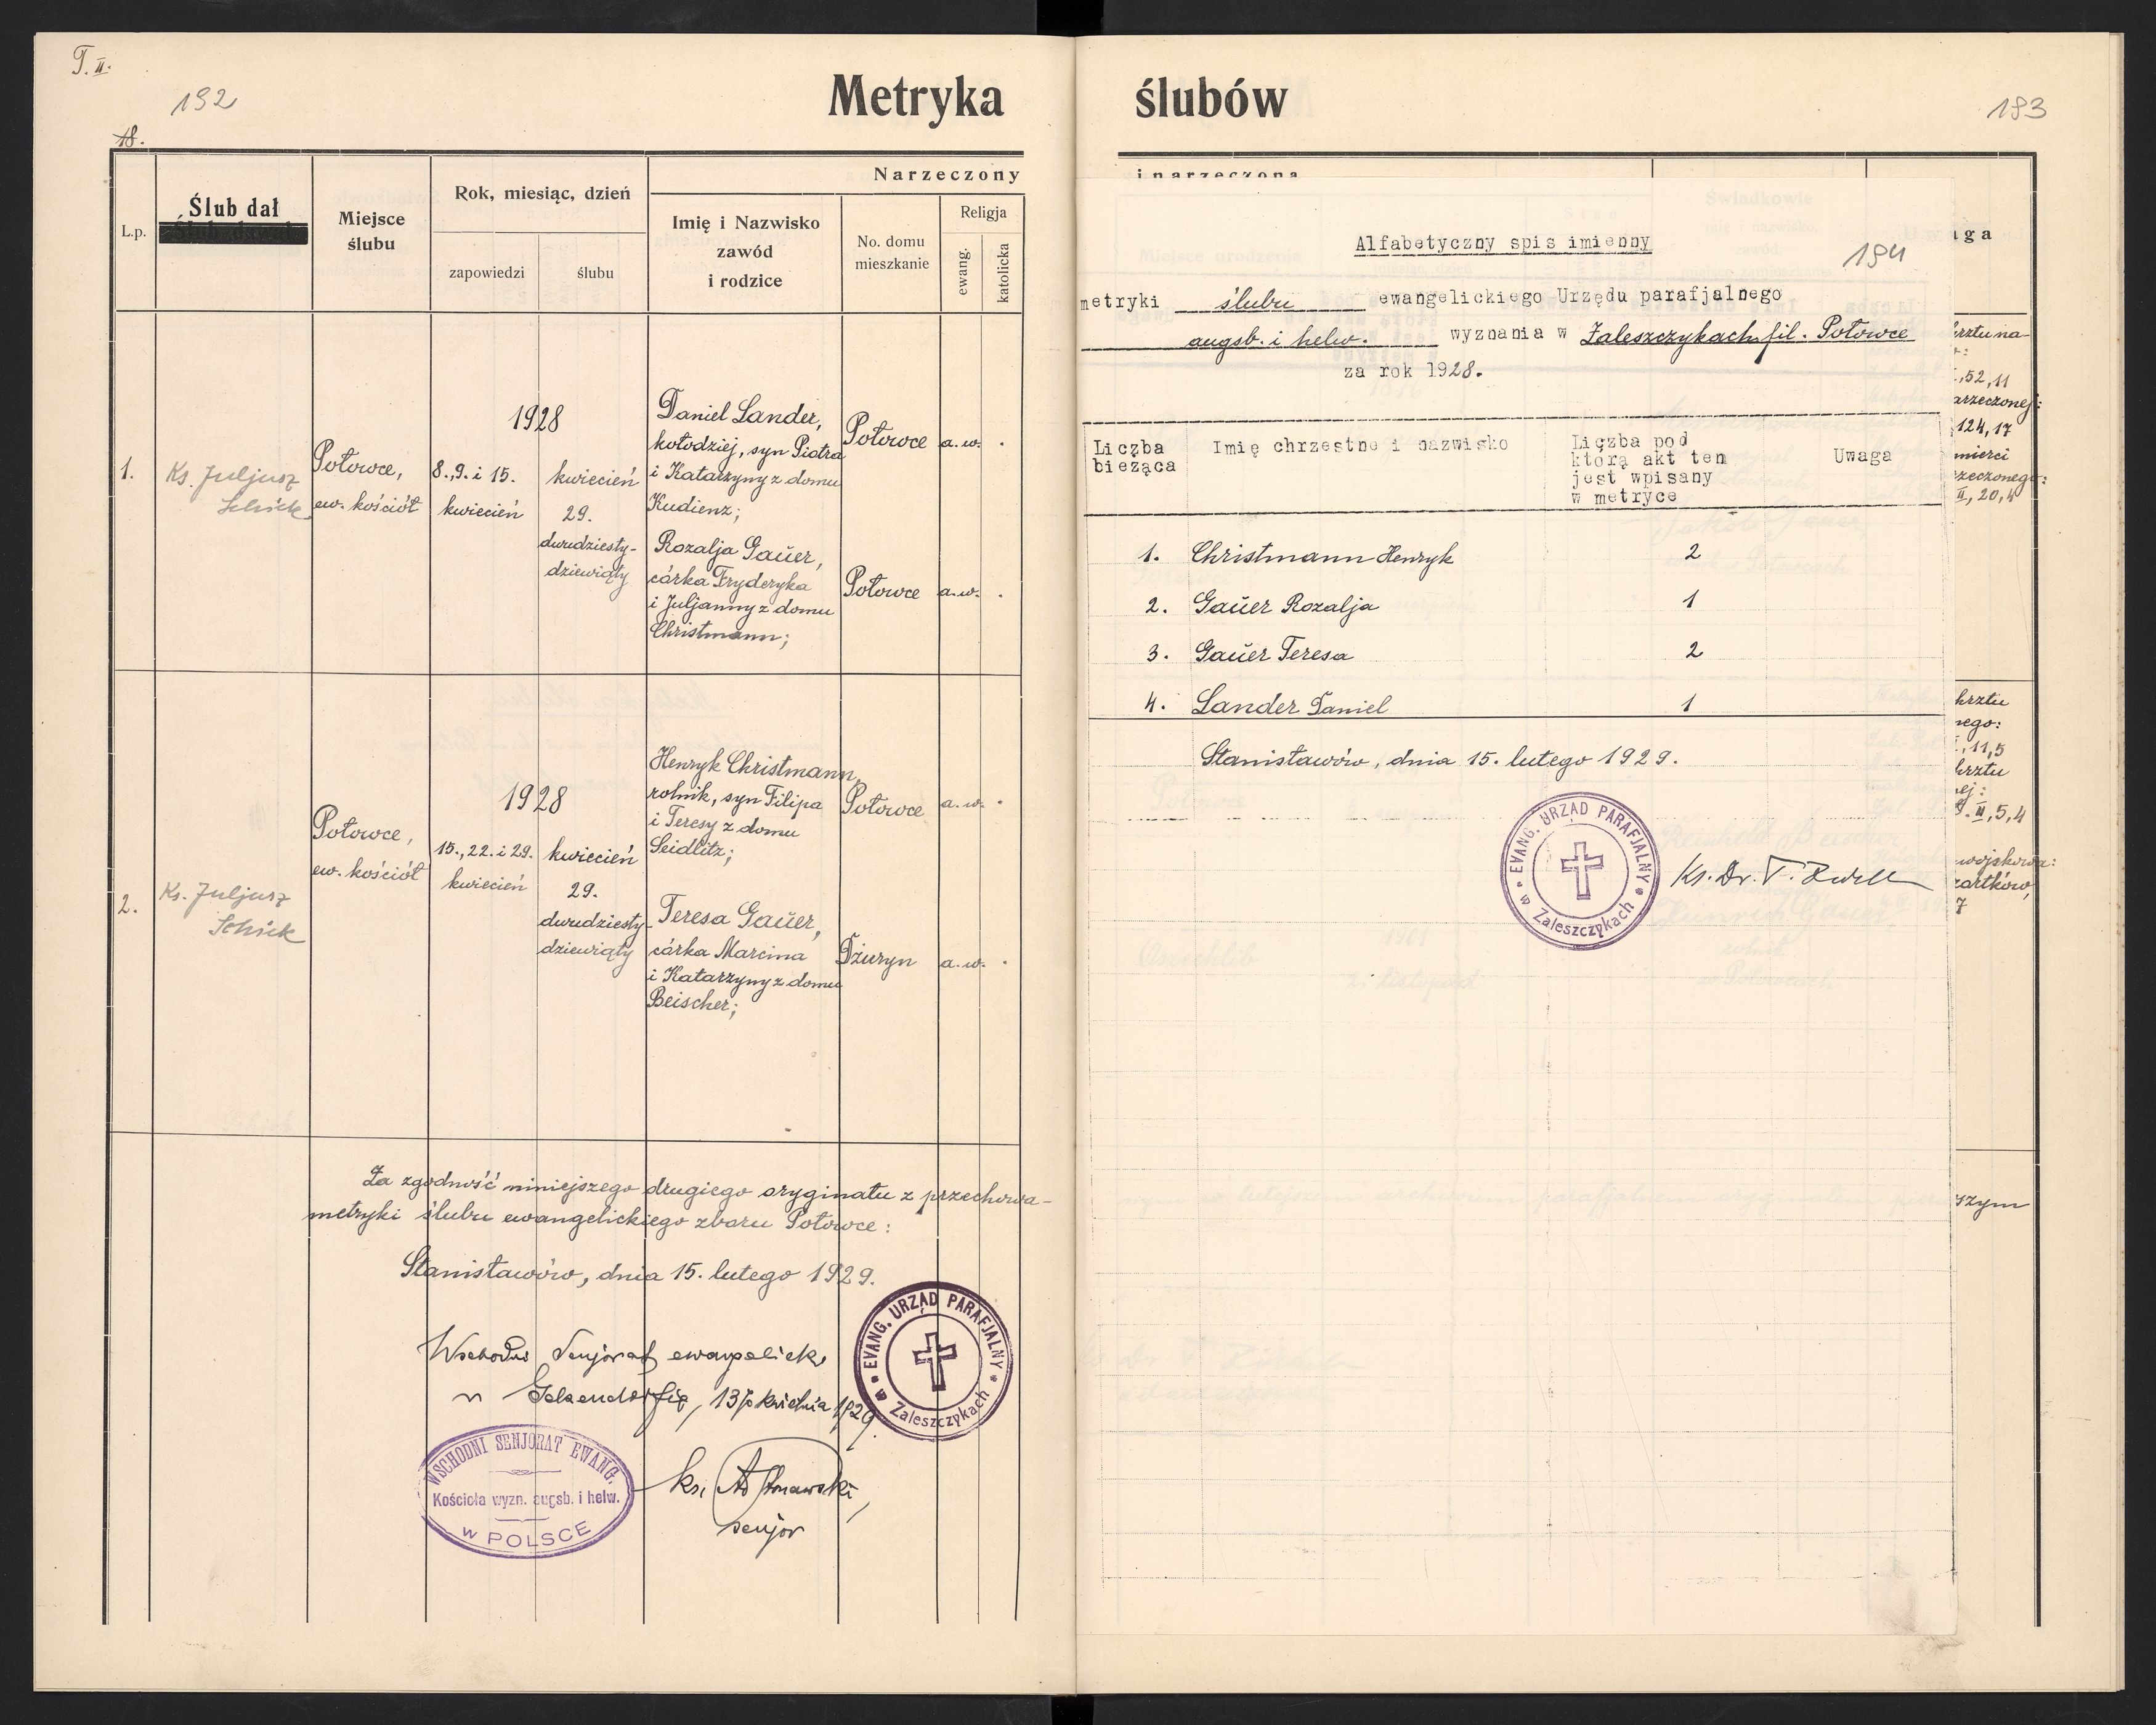 T. II.
192
18.
Metryka
L.p.
Ślub dał
Miejsce
ślubu
Rok, miesiąc, dzień
zapowiedzi
ślubu
Narzeczony
Imię i Nazwisko
zawód
i rodzice
No. domu
mieszkanie
Religja
ewang.
katolicka
1.
Ks. Juljusz
Schick
Połowce,
ew. kościół
1928
8.,9. i 15.
kwiecień
kwiecień
29.
dwudziesty-
dziewiąty
Daniel Lander,
kołodziej, syn Piotra
i Katarzyny z domu
Kudienz;
Połowce
a.w.
Rozalja Gaŭer,
córka Fryderyka
i Juljanny z domu
Christmann;
Połowce
a.w.
2.
Ks. Juljusz
Schick
Połowce,
ew. kościół
1928
15.,22. i 29.
kwiecień
kwiecień
29.
dwudziesty-
dziewiąty
Henryk Christmann,
rolnik, syn Filipa
i Teresy z domu
Seidlitz;
Połowce
a.w.
Teresa Gaŭer,
córka Marcina
i Katarzyny z domu
Beischer;
Dżuryn
a.w.
Za zgodność niniejszego drugiego oryginału z przechowa-
metryki ślubu ewangelickiego zboru Połowce:
Stanisławów, dnia 15. lutego 1929.
EVANG. URZĄD PARAFJALNY
w Zaleszczykach
Wschodni Senjorat ewangelicki
w Gelsendorfie, 13go kwietnia 1929.
WSCHODNI SENJORAT EWANG.
Kościoła wyzn. augsb. i helw.
w POLSCE
ks.
senjor
ślubów
193
i narzeczona
Alfabetyczny spis imienny
194
metryki ślubu ewangelickiego Urzędu parafjalnego
augsb. i helw. wyznania w Zaleszczykach fil. Połowce
za rok 1928.
Liczba
bieżąca
Imię chrzestne i nazwisko
Liczba pod
którą akt ten
jest wpisany
w metryce
Uwaga
1. Christmann Henryk 2
2. Gaŭer Rozalja 1
3. Gaŭer Teresa 2
4. Lander Daniel 1
Stanisławów, dnia 15. lutego 1929.
EVANG. URZĄD PARAFJALNY
w Zaleszczykach
Ks. Dr. T. Zöckler
aga
hrztu na-
,52,11
arzeczonej:
124,17
mierci
rzeczonego:
II, 20,4
hrztu
nego:
,11,5
hrztu
ej:
T. II, 5,4
wojskowa:
zartków,
7
szym